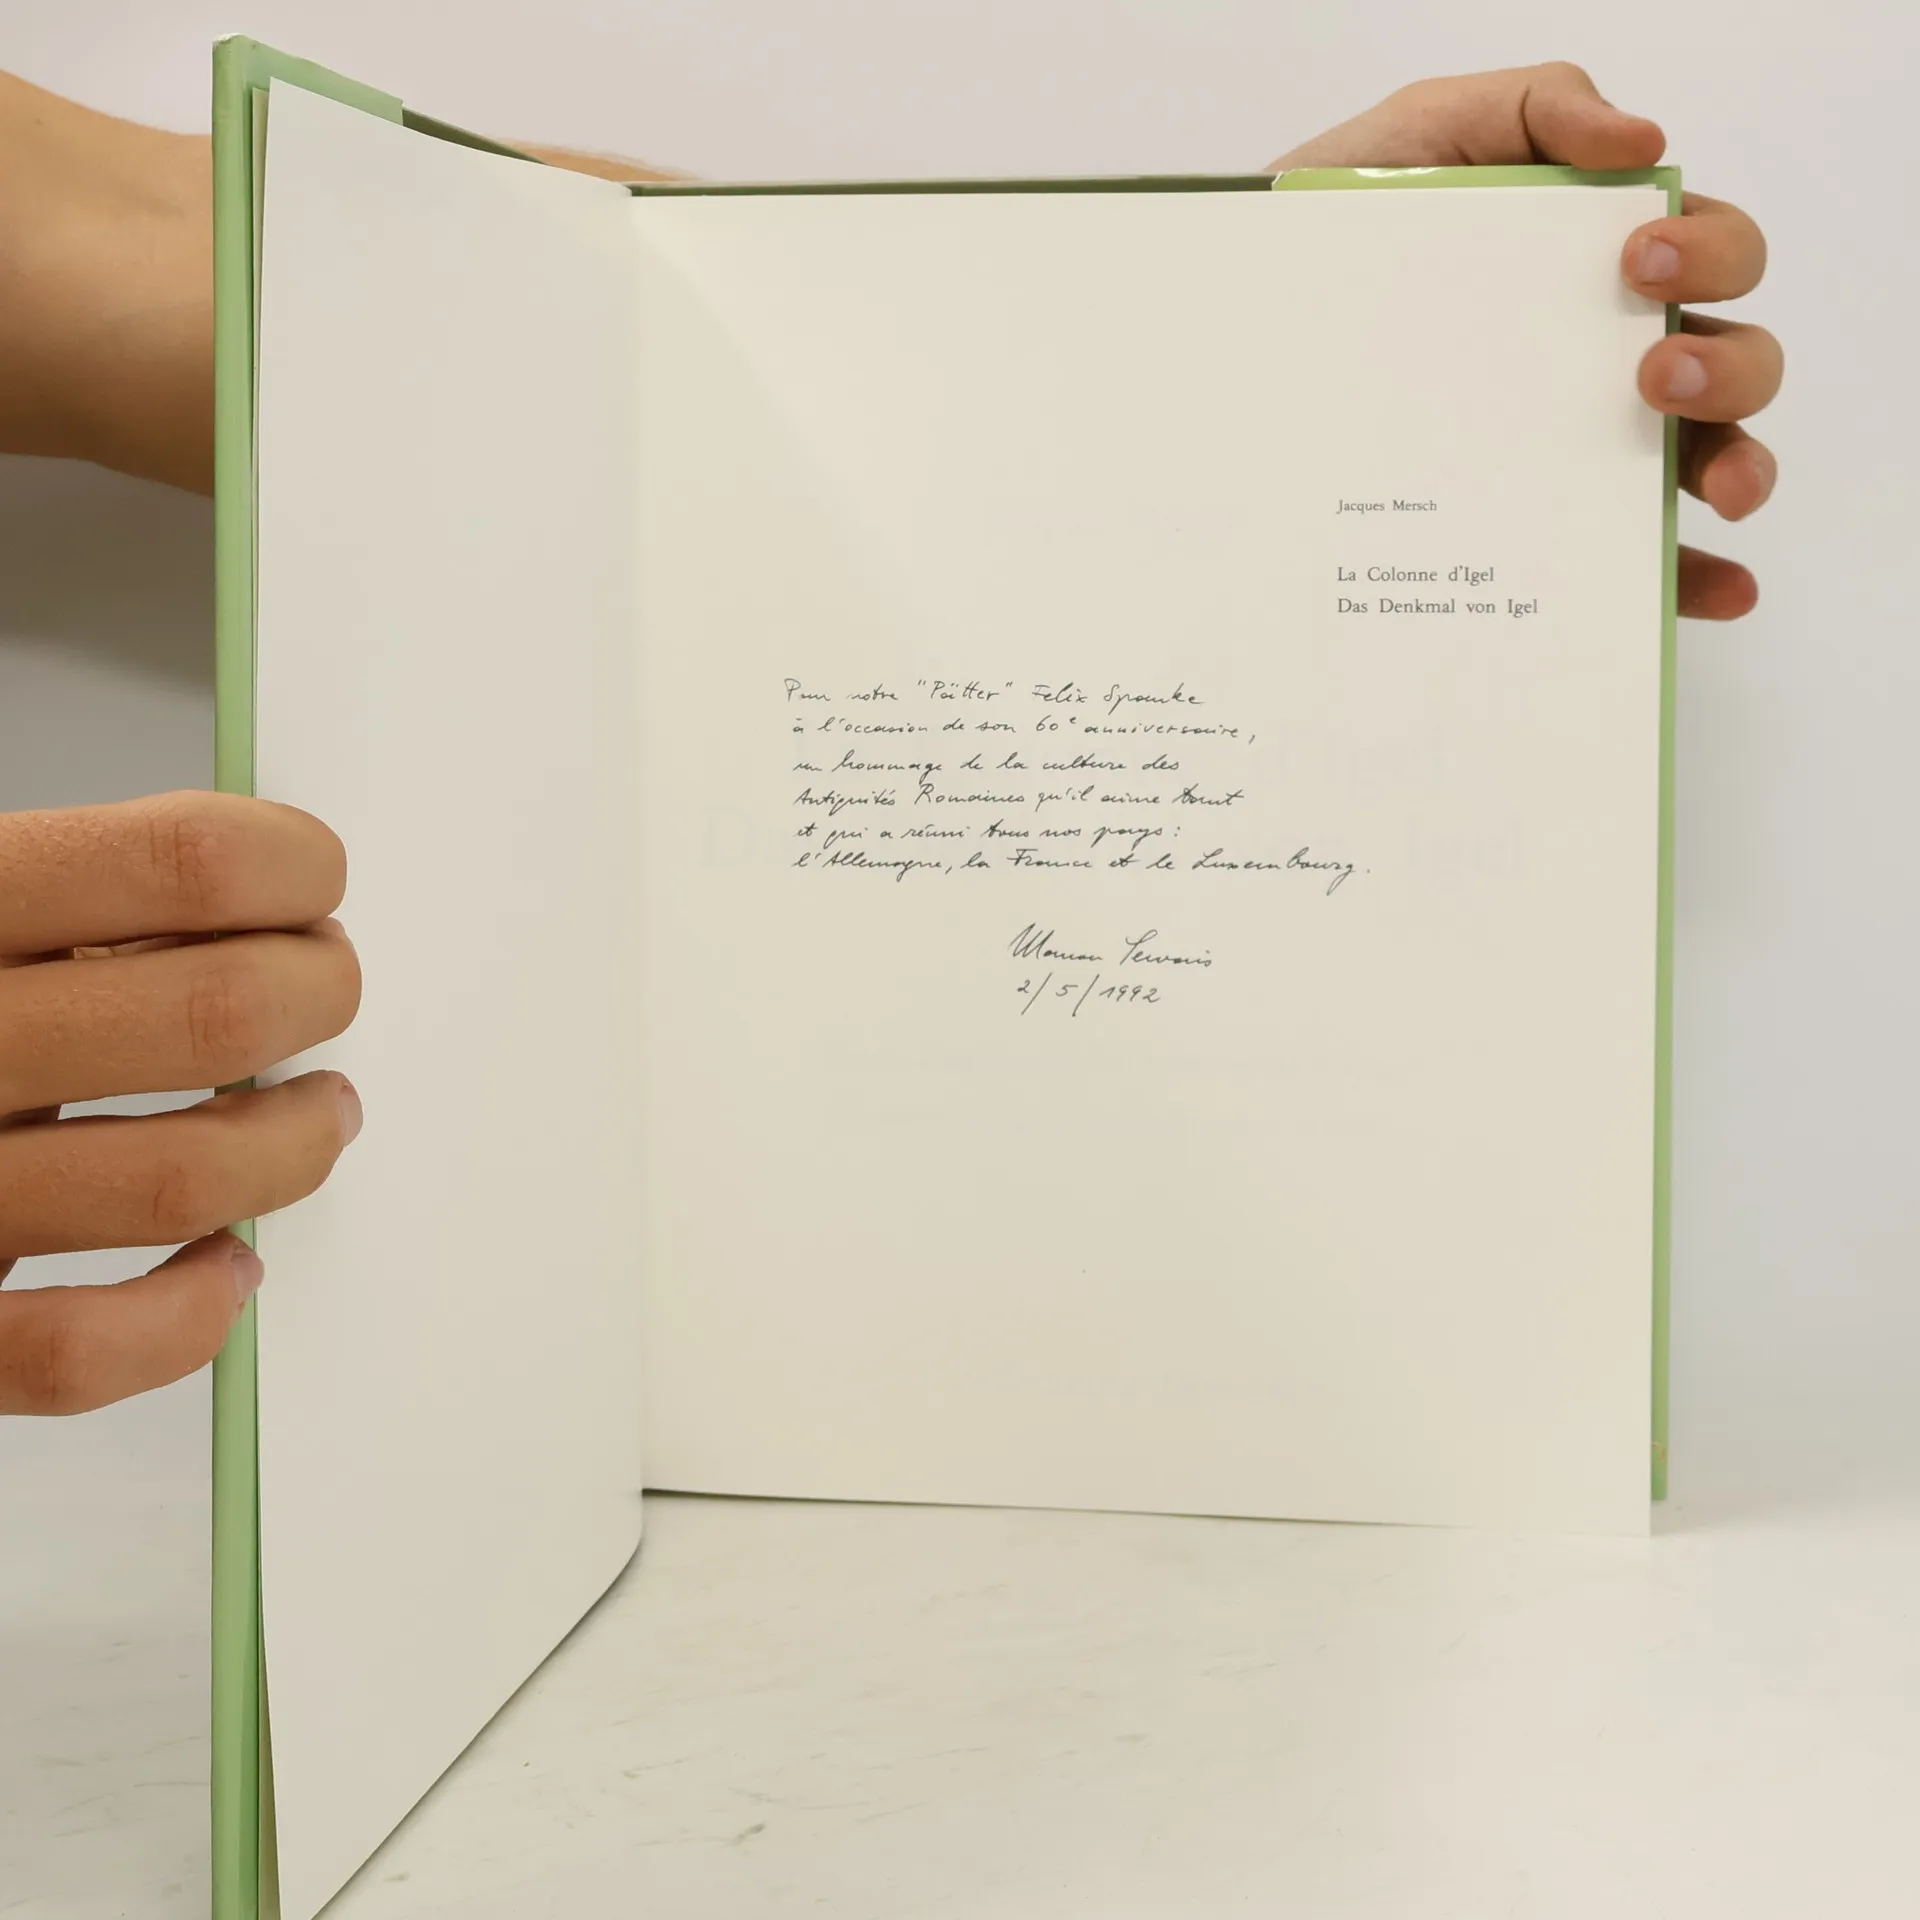 Jacques Mersch
La Colonne d'Igel
Das Denkmal von Igel
Pour notre "Pätter" Felix Spanke
à l'occasion de son 60e anniversaire,
un hommage de la culture des
Antiquités Romaines qu'il aime tant
et qui a réuni tous nos pays :
l'Allemagne, la France et le Luxembourg.
Manon Servais
2/5/1992